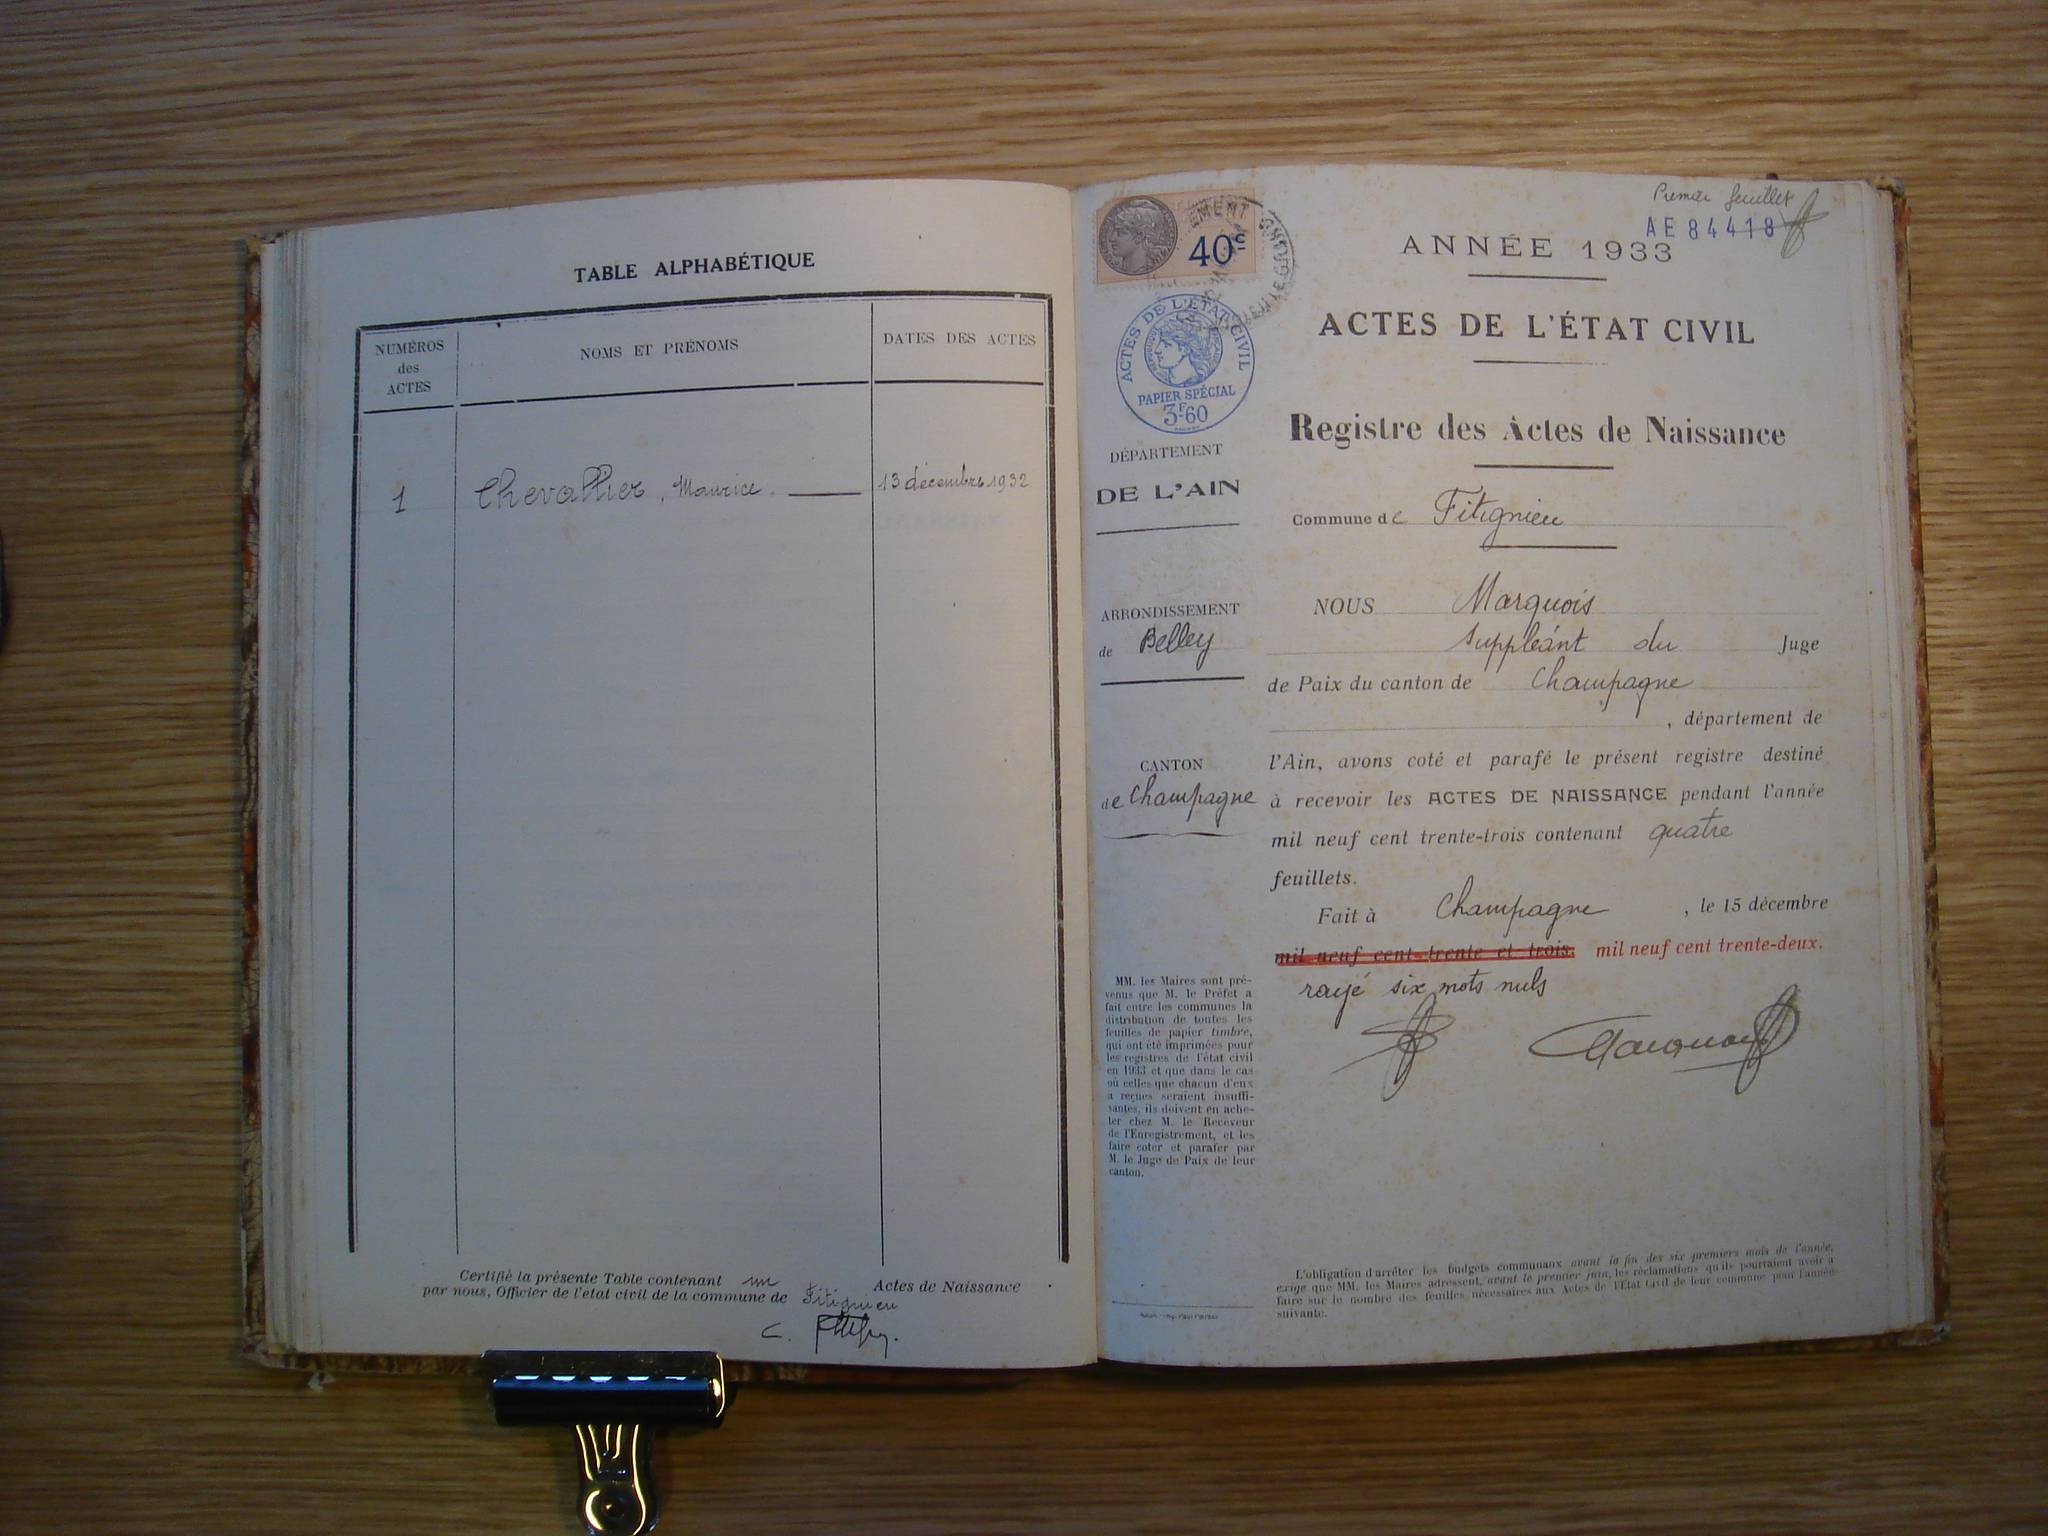 TABLE ALPHABÉTIQUE
NUMÉROS
des
ACTES
NOMS ET PRÉNOMS
DATES DES ACTES
1 Chevallier, Maurice. 13 décembre 1932
Certifié la présente Table contenant un Actes de Naissance
par nous, Officier de l'état civil de la commune de Fitignieu
C.
Premier feuillet
AE 84418
40c
ACTES DE L'ÉTAT CIVIL
PAPIER SPÉCIAL
3F60
DÉPARTEMENT
DE L'AIN
ARRONDISSEMENT
de Belley
CANTON
de Champagne
MM. les Maires sont pré-
venus que M. le Préfet a
fait entre les communes la
distribution de toutes les
feuilles de papier timbré,
qui ont été imprimées pour
les registres de l'état civil
en 1933 et que dans le cas
où celles que chacun d'eux
a reçues seraient insuffi-
santes, ils doivent en ache-
ter chez M. le Receveur
de l'Enregistrement, et les
faire coter et parafer par
M. le Juge de Paix de leur
canton.
ANNÉE 1933
ACTES DE L'ÉTAT CIVIL
Registre des Actes de Naissance
Commune de Fitignieu
NOUS Marquois
suppléant du Juge
de Paix du canton de Champagne
, département de
l'Ain, avons coté et parafé le présent registre destiné
à recevoir les ACTES DE NAISSANCE pendant l'année
mil neuf cent trente-trois contenant quatre
feuillets.
Fait à Champagne, le 15 décembre
mil neuf cent trente et trois. mil neuf cent trente-deux.
rayé six mots nuls
L'obligation d'arrêter les budgets communaux avant la fin des six premiers mois de l'année,
exige que MM. les Maires adressent, avant le premier juin, les réclamations qu'ils pourraient avoir à
faire sur le nombre des feuilles nécessaires aux Actes de l'État Civil de leur commune pour l'année
suivante.